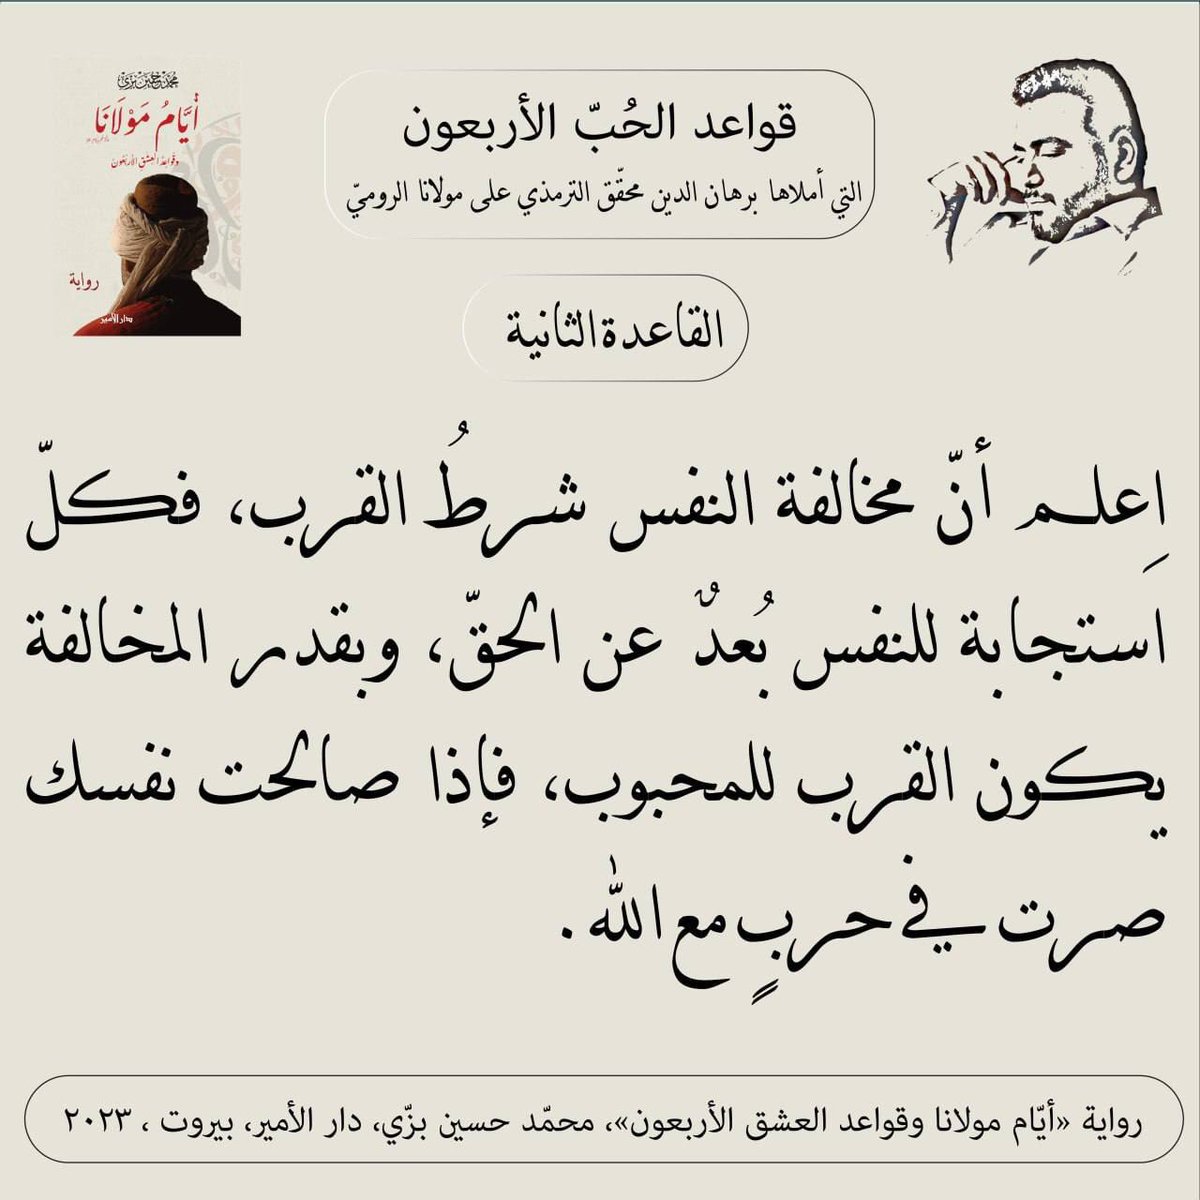 محمد حسين بزي
أيَّامُ مَوْلَانَا
وقواعد العشق الأربعون
رواية
دار الأمير
قواعد الحُبّ الأربعون
التي أملاها برهان الدين محقّق الترمذي على مولانا الروميّ
القاعدة الثانية
اِعلم أنّ مخالفة النفس شرطُ القرب، فكلّ
استجابة للنفس بُعدٌ عن الحقّ، وبقدر المخالفة
يكون القرب للمحبوب، فإذا صالحت نفسك
صرت في حربٍ مع الله.
رواية «أيّام مولانا وقواعد العشق الأربعون»، محمّد حسين بزّي، دار الأمير، بيروت ، ٢٠٢٣